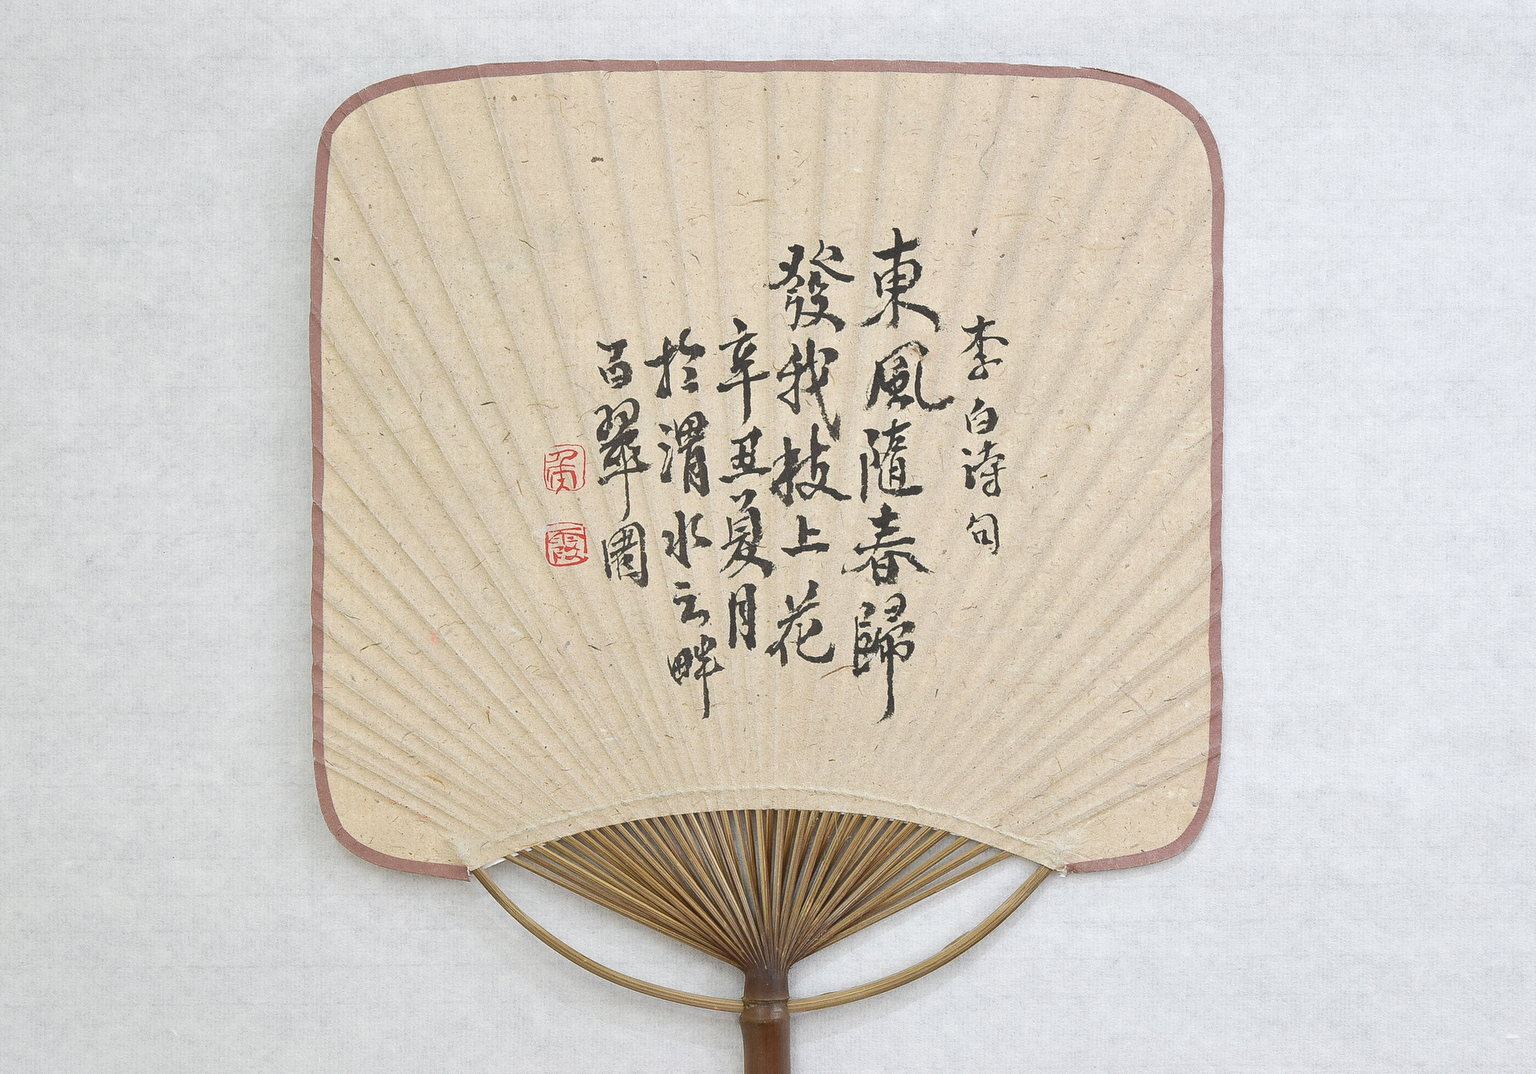 李白诗句
東風隨春歸
發我枝上花
辛丑夏月
於渭水云畔
百翠園
霞